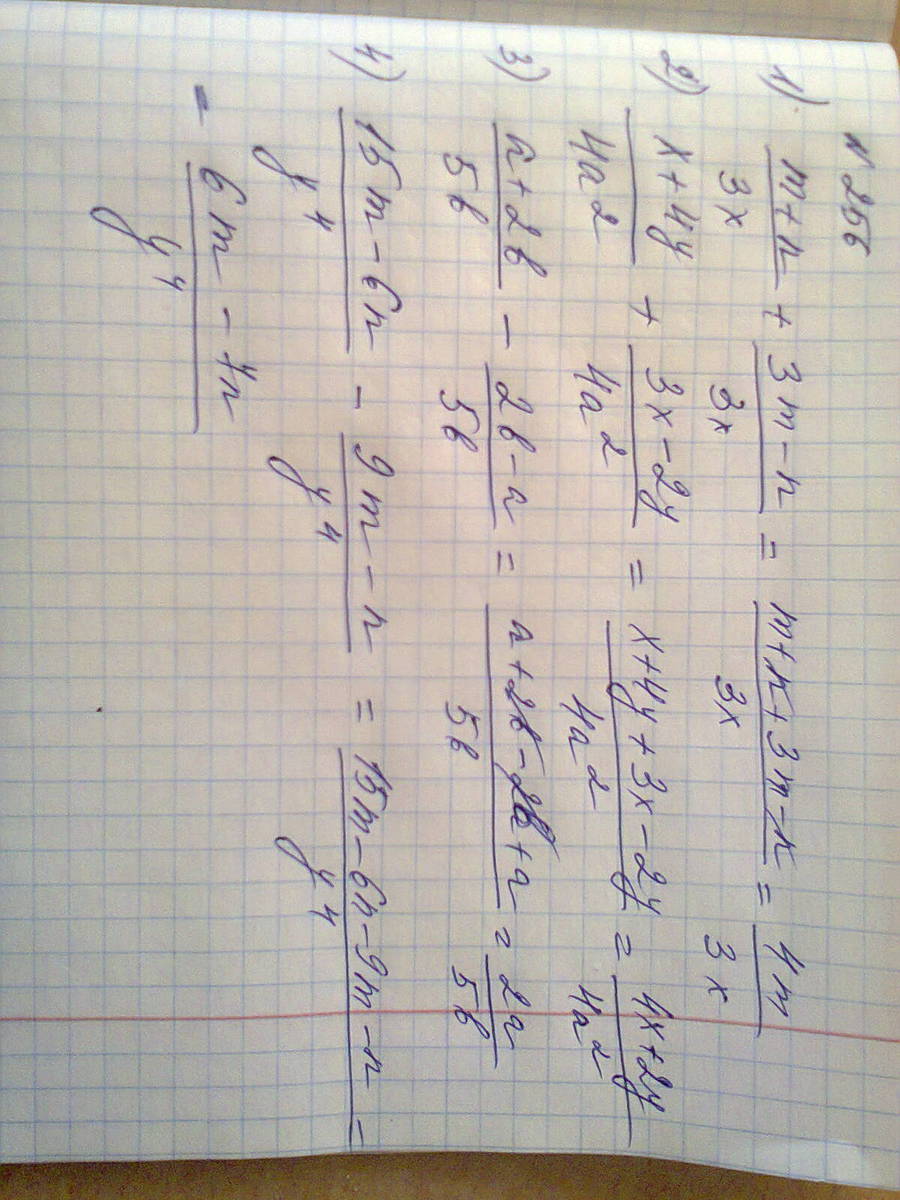 № 256
1) (m+n)/3x + (3m-n)/3x = (m+n+3m-n)/3x = 4m/3x
2) (x+4y)/4a² + (3x-2y)/4a² = (x+4y+3x-2y)/4a² = (4x+2y)/4a²
3) (a+2b)/5b - (2b-a)/5b = (a+2b-2b+a)/5b = 2a/5b
4) (15m-6n)/y⁴ - (9m-n)/y⁴ = (15m-6n-9m-n)/y⁴ =
= (6m-7n)/y⁴